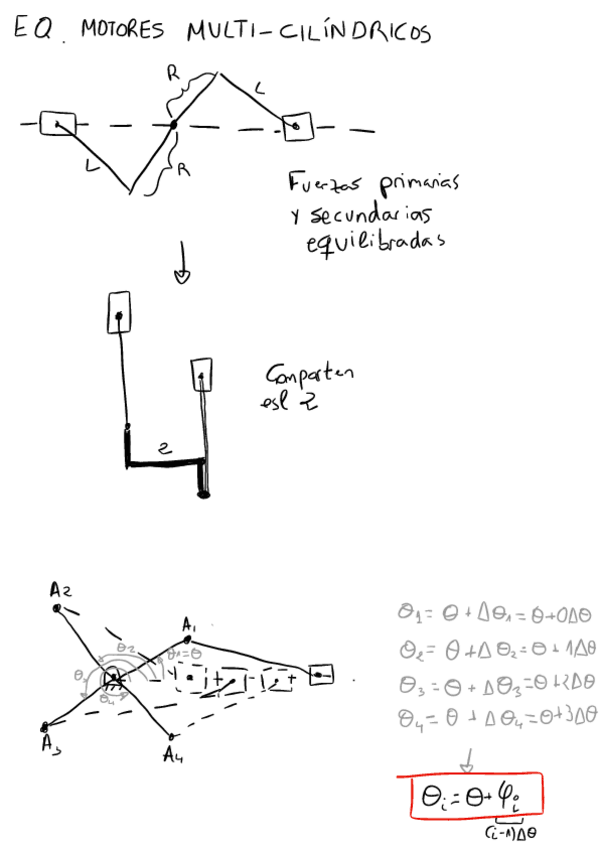 EQ. MOTORES MULTI-CILÍNDRICOS
R
L
L
R
Fuerzas primarias
y secundarias
equilibradas
Comparten
esl 2
2
A2
A1
θ2
θ1=θ
θ3
θ4
A3
A4
θ1 = θ + Δθ1 = θ+0Δθ
θ2 = θ+Δθ2 = θ + 1Δθ
θ3 = θ + Δθ3 = θ+2Δθ
θ4 = θ + Δθ4 = θ+3Δθ
θi = θ + φi
(i-1)Δθ